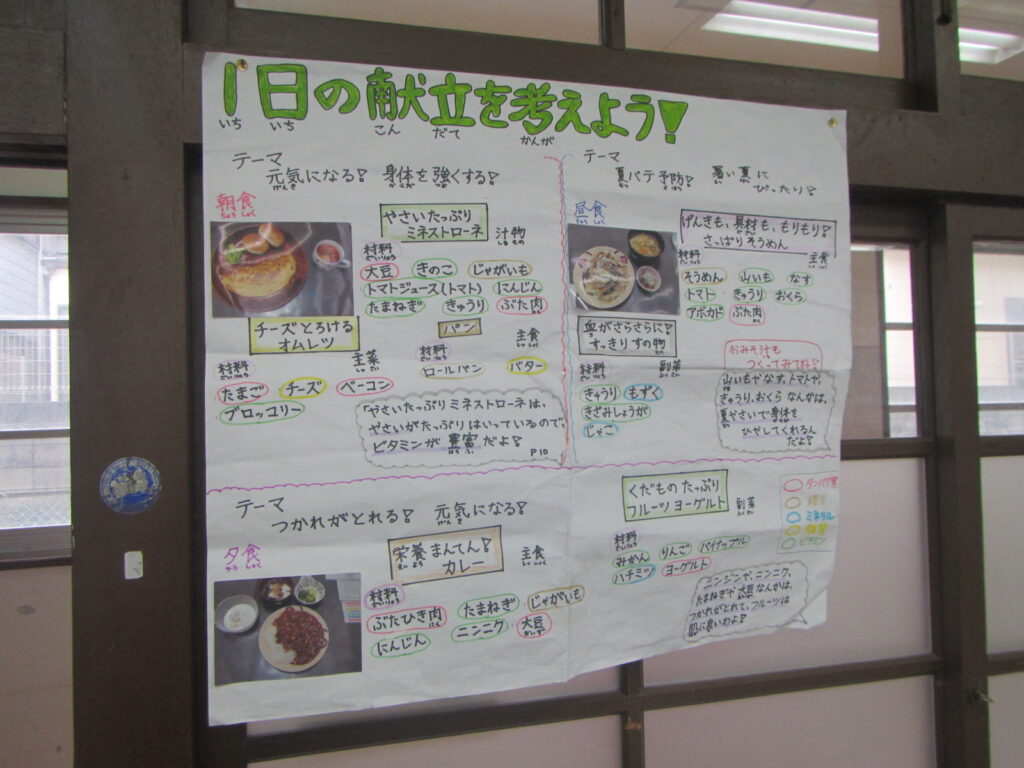 1日の献立を考えよう!
いち いち こん だて かんが
テーマ
元気になる! 身体を強くする!
げんき からだ つよ
朝食
ちょうしょく
やさいたっぷり
ミネストローネ
汁物
しるもの
材料
ざいりょう
大豆 きのこ じゃがいも
トマトジュース(トマト) にんじん
たまねぎ きゅうり ぶた肉
チーズとろける
オムレツ
主菜
しゅさい
材料
ざいりょう
たまご チーズ ベーコン
ブロッコリー
パン
主食
しゅしょく
材料
ざいりょう
ロールパン バター
「やさいたっぷりミネストローネは、
やさいがたっぷりはいっているので、
ビタミンが豊富だよ!
ほうふ
P10
テーマ
夏バテ予防! 暑い夏に
ぴったり!
昼食
ちゅうしょく
げんきも、具材も、もりもり!
さっぱりそうめん
材料
ざいりょう
主食
しゅしょく
そうめん 山いも なす
トマト きゅうり おくら
アボカド ぶた肉
血がさらさらに!
すっきりすの物
材料
ざいりょう
副菜
ふくさい
きゅうり もずく
きざみしょうが
じゃこ
おみそ汁も
つくってみてね!
山いもやなす、トマトや
きゅうり、おくらなんかは、
夏やさいで身体を
ひやしてくれるん
だよ!
テーマ
つかれがとれる! 元気になる!
げんき
夕食
ゆうしょく
栄養まんてん!
えいよう
カレー
主食
しゅしょく
材料
ざいりょう
ぶたひき肉 たまねぎ じゃがいも
にんじん ニンニク 大豆
だいず
くだものたっぷり
フルーツヨーグルト
副菜
ふくさい
材料
ざいりょう
みかん りんご パイナップル
ハチミツ ヨーグルト
タンパク質
ミネラル
ビタミン
ニンジンや、ニンニク、
たまねぎや大豆なんかは、
つかれがとれて、フルーツは
肌に良いわよ!